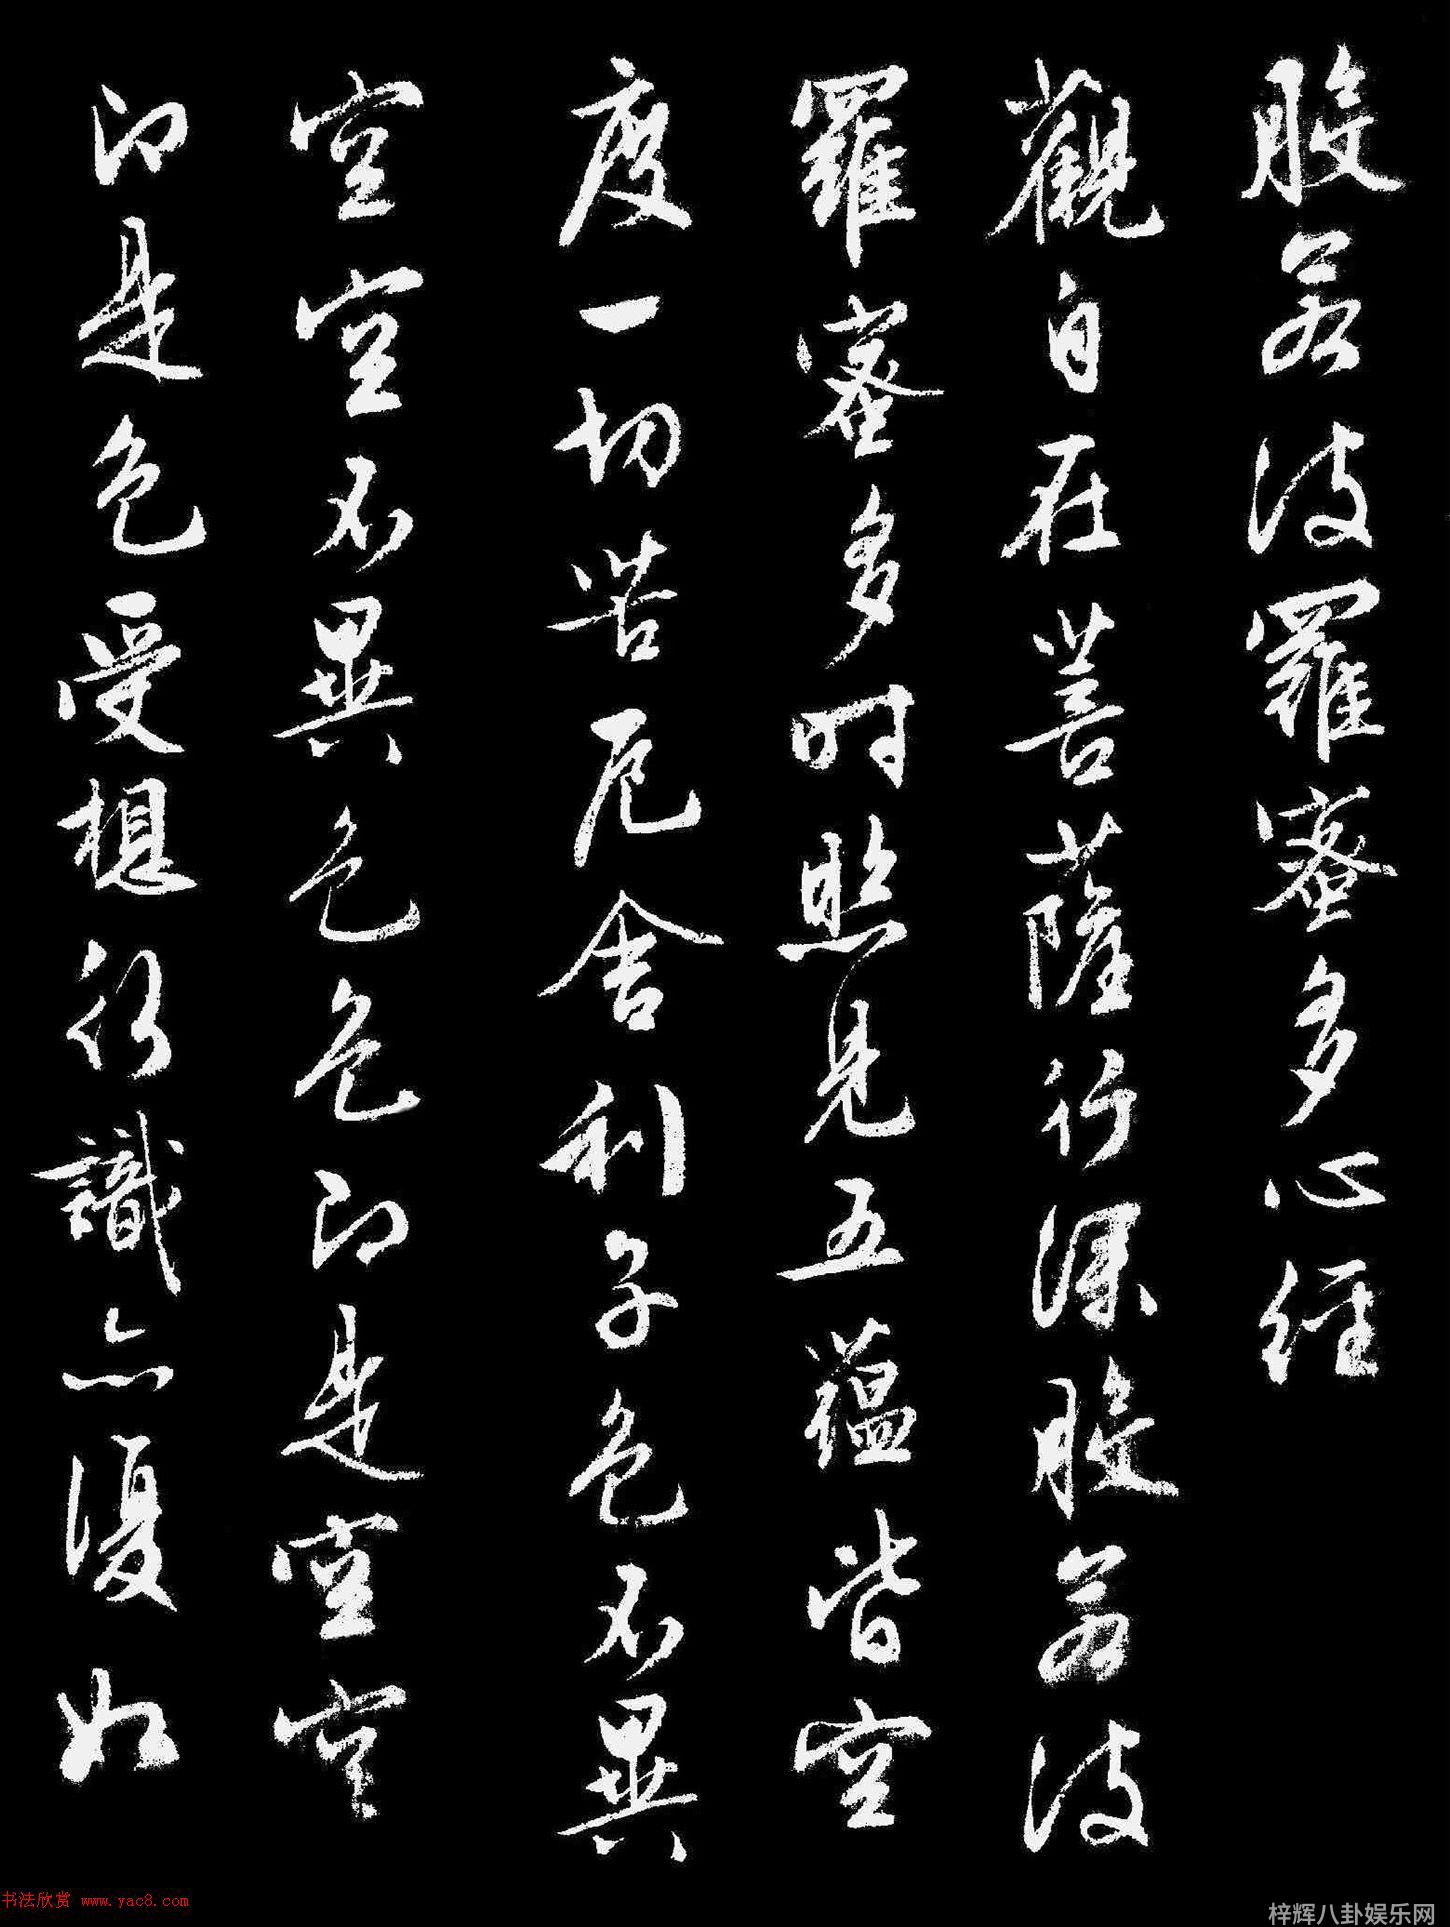 般若波羅蜜多心經
觀自在菩薩行深般若波
羅蜜多時照見五蘊皆空
度一切苦厄舍利子色不異
空空不異色色即是空空
即是色受想行識亦復如
书法欣赏 www.yac8.com
梓辉八卦娱乐网